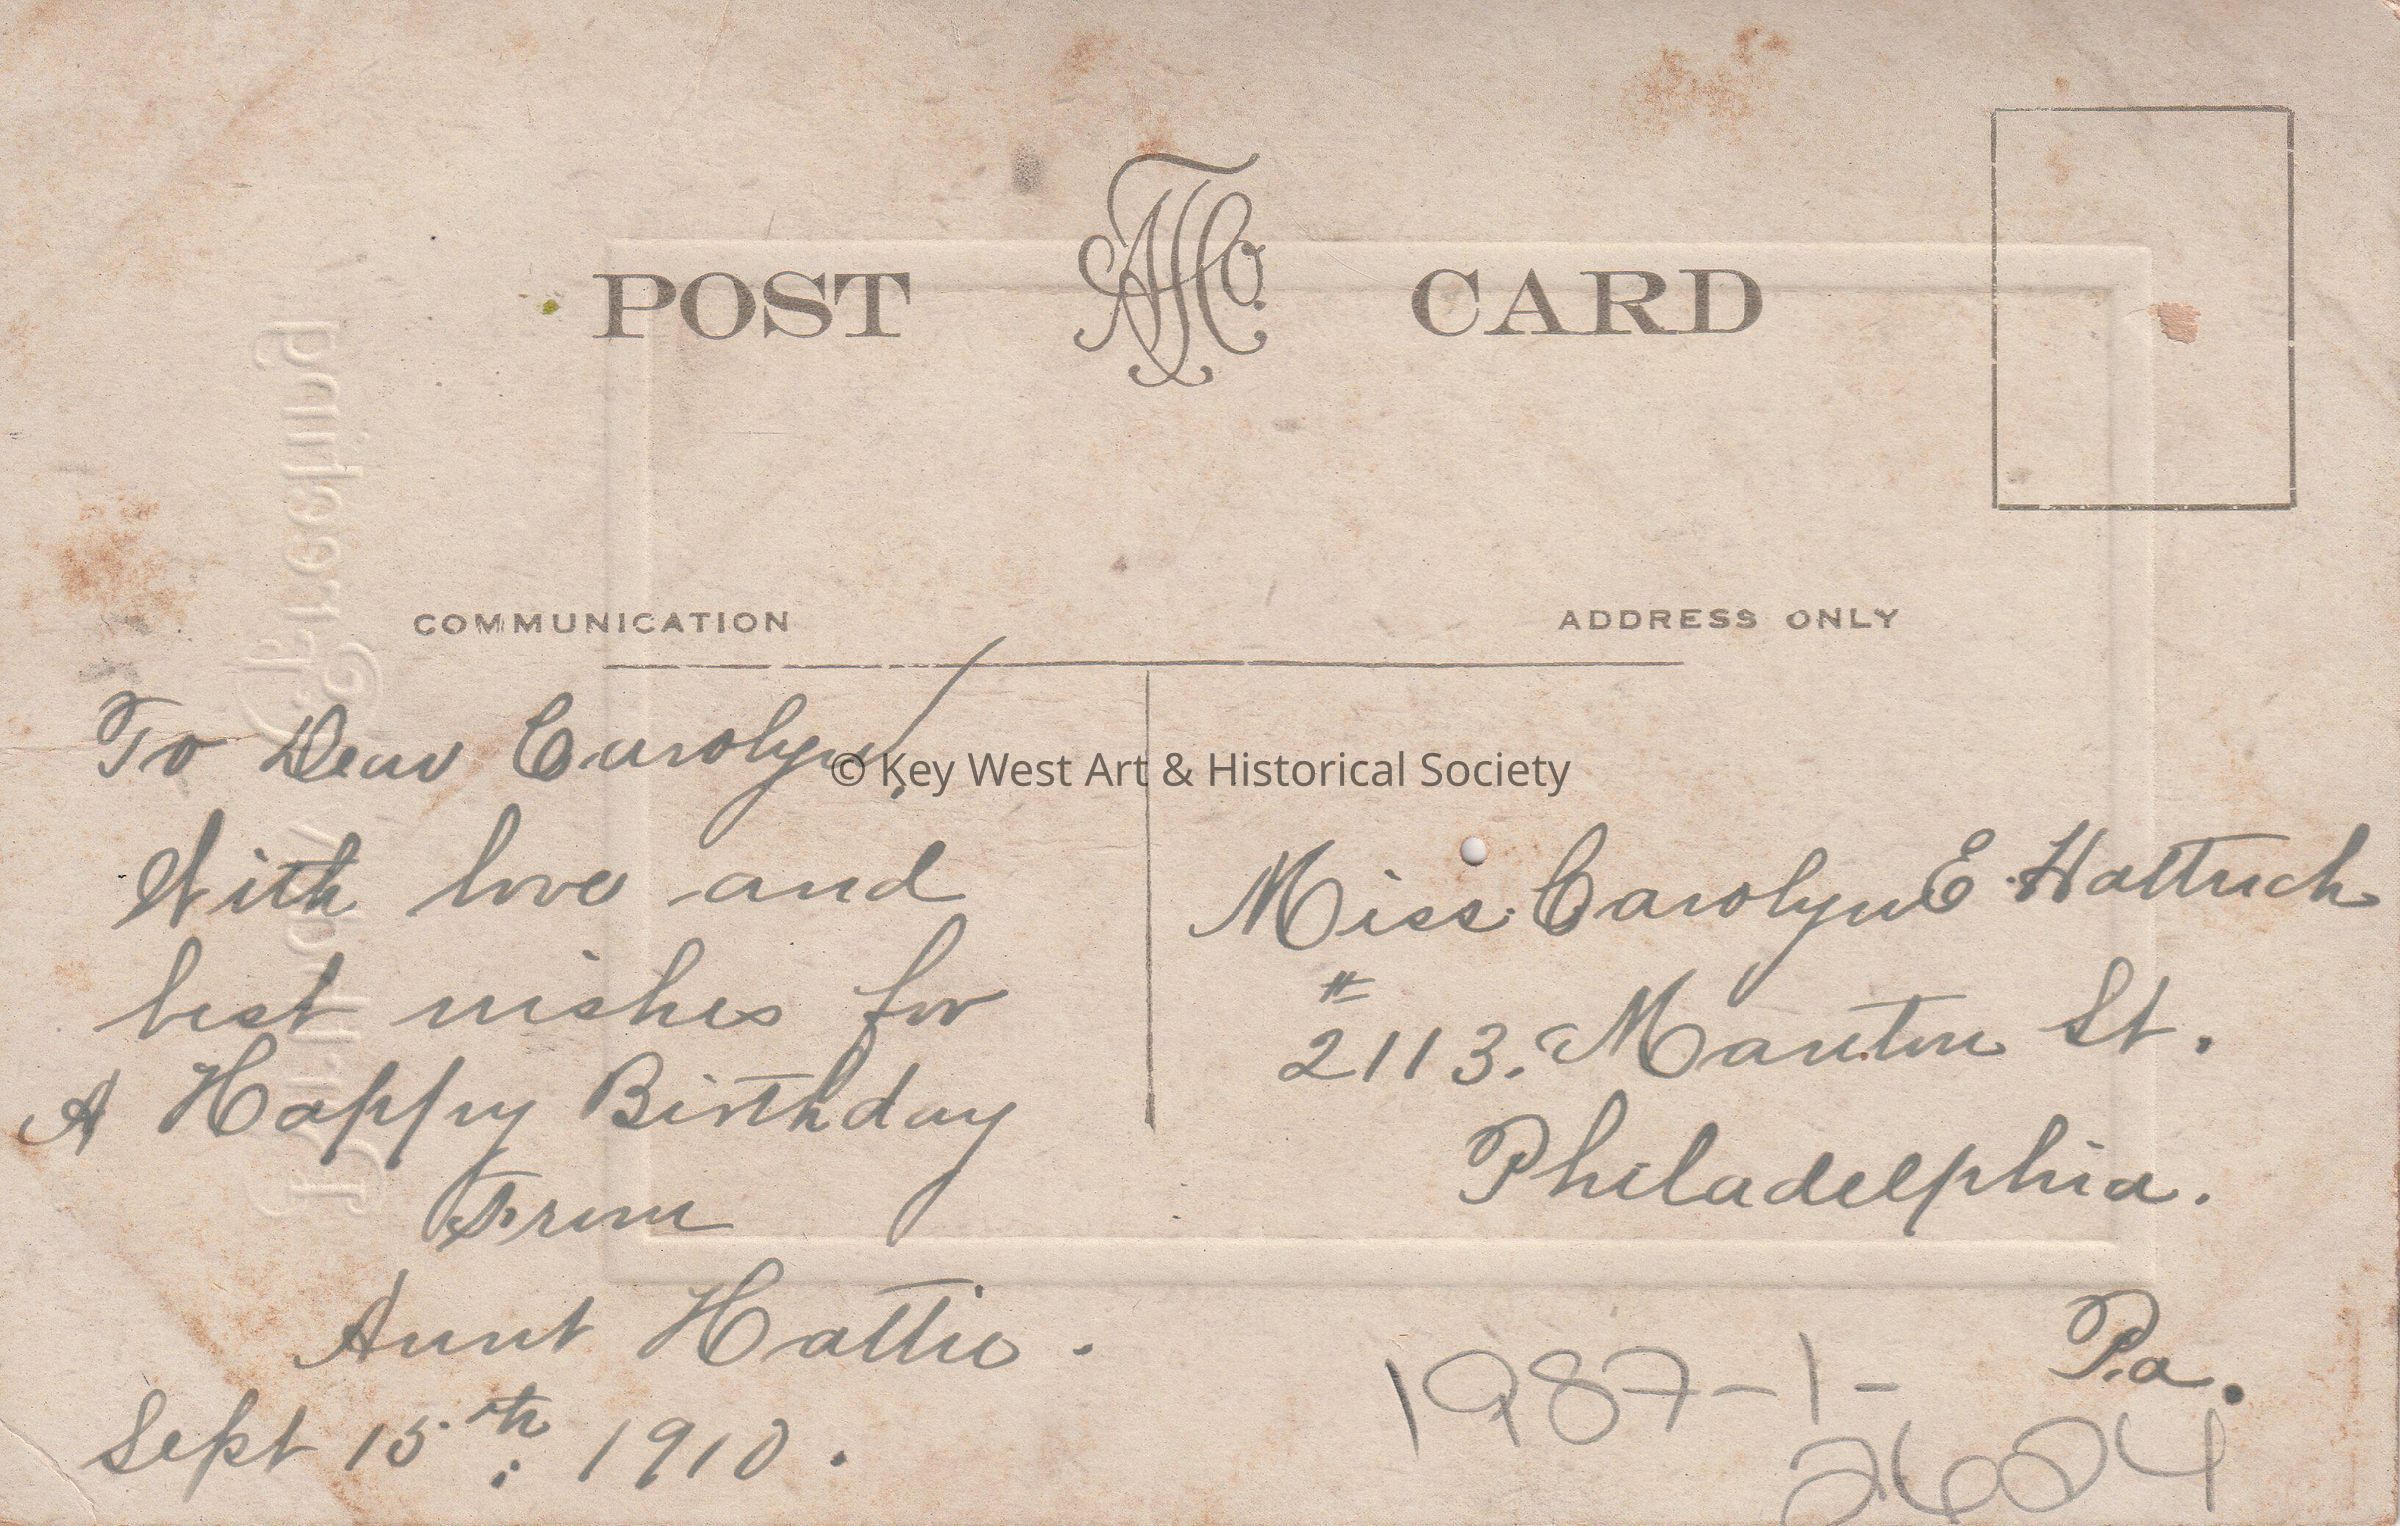 POST CARD
COMMUNICATION
ADDRESS ONLY
To Dear Carolyn!
With love and
best wishes for
A Happy Birthday
From
Aunt Hattie.
Sept 15th, 1910.
Miss Carolyn E
# 2113. Manton St.
Philadelphia.
Pa.
1987-1-
2624
© Key West Art & Historical Society
Birthday Greeting